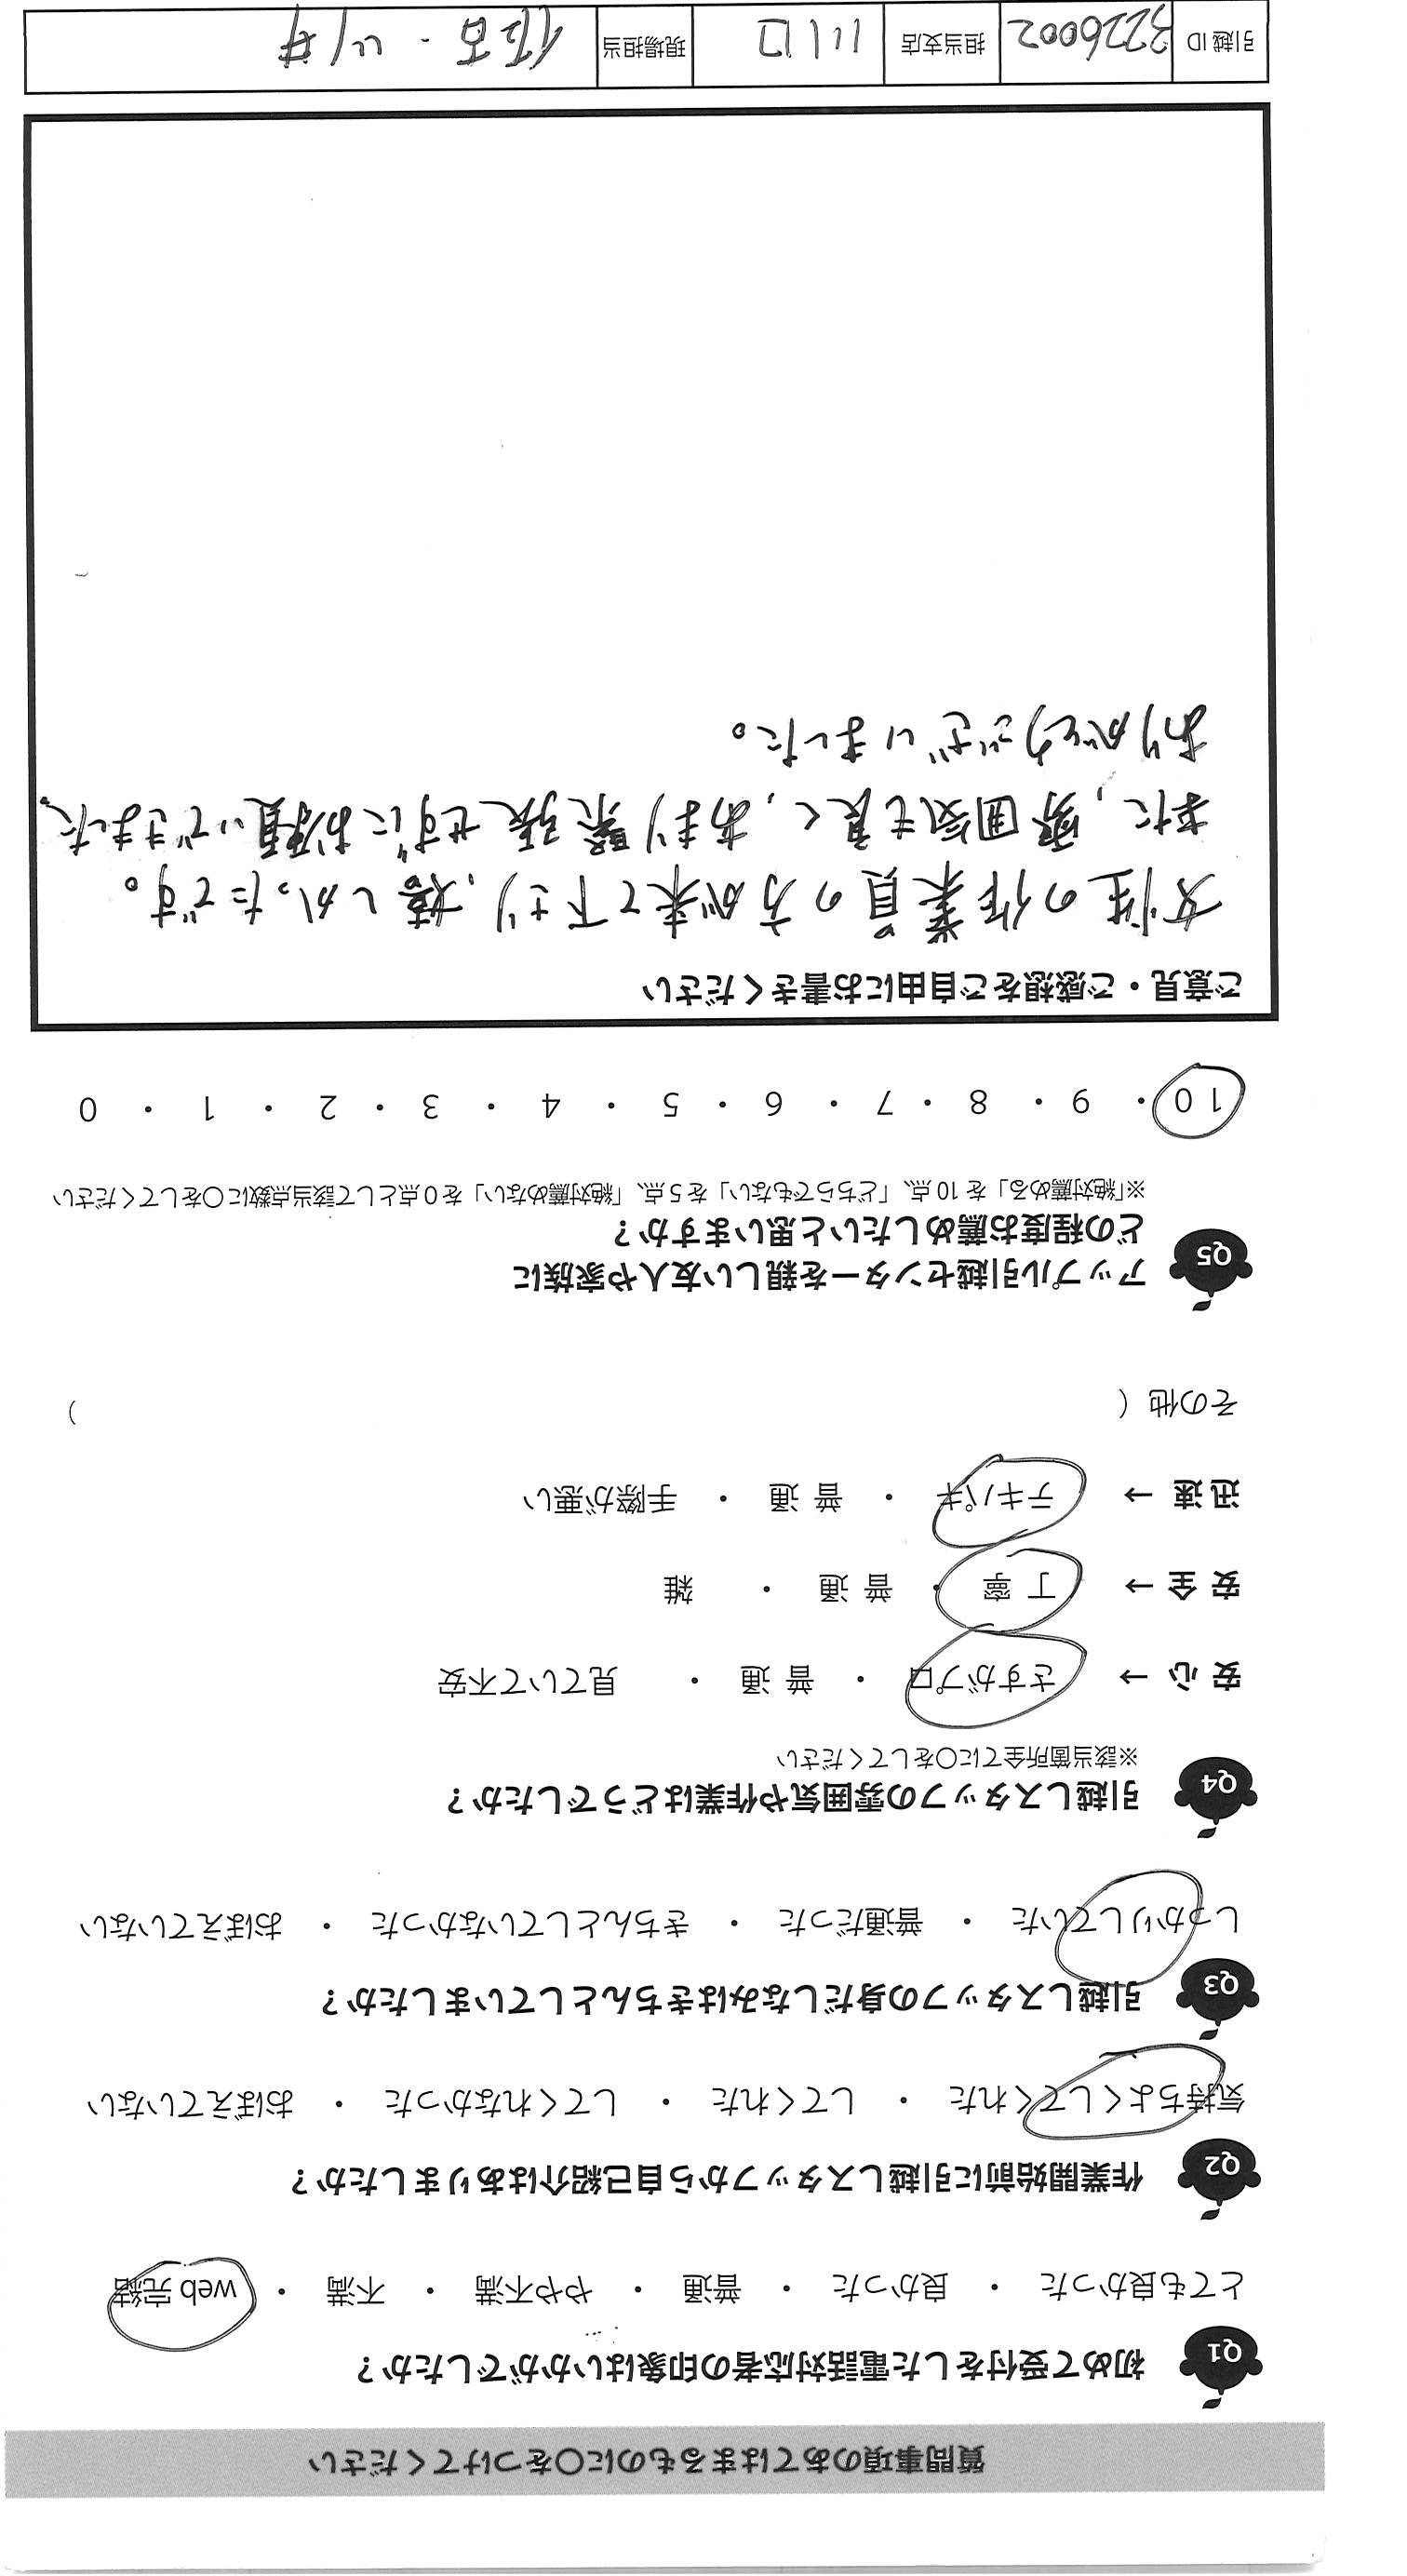 質問事項のあてはまるものに〇をつけてください
Q1 初めて受付をした電話対応者の印象はいかがでしたか？
とても良かった ・ 良かった ・ 普通 ・ やや不満 ・ 不満 ・ web 完結
Q2 作業開始前に引越しスタッフから自己紹介はありましたか？
気持ちよくしてくれた ・ してくれた ・ してくれなかった ・ おぼえていない
Q3 引越しスタッフの身だしなみはきちんとしていましたか？
しっかりしていた ・ 普通だった ・ きちんとしていなかった ・ おぼえていない
Q4 引越しスタッフの雰囲気や作業はどうでしたか？
※該当箇所全てに〇をしてください
安 心 → さすがプロ ・ 普 通 ・ 見ていて不安
安 全 → 丁 寧 ・ 普 通 ・ 雑
迅 速 → テキパキ ・ 普 通 ・ 手際が悪い
その他（ ）
Q5 アップル引越センターを親しい友人や家族に
どの程度お薦めしたいと思いますか？
※「絶対薦める」を 10 点、「どちらでもない」を 5 点、「絶対薦めない」を 0 点として該当点数に〇をしてください
10 ・ 9 ・ 8 ・ 7 ・ 6 ・ 5 ・ 4 ・ 3 ・ 2 ・ 1 ・ 0
ご意見・ご感想をご自由にお書きください
女性の作業員の方が来て下さり、嬉しかったです。
また，雰囲気も良く，あまり緊張せずにお願いできました。
ありがとうございました。
引越 ID 3226002 担当支店 川口 現場担当